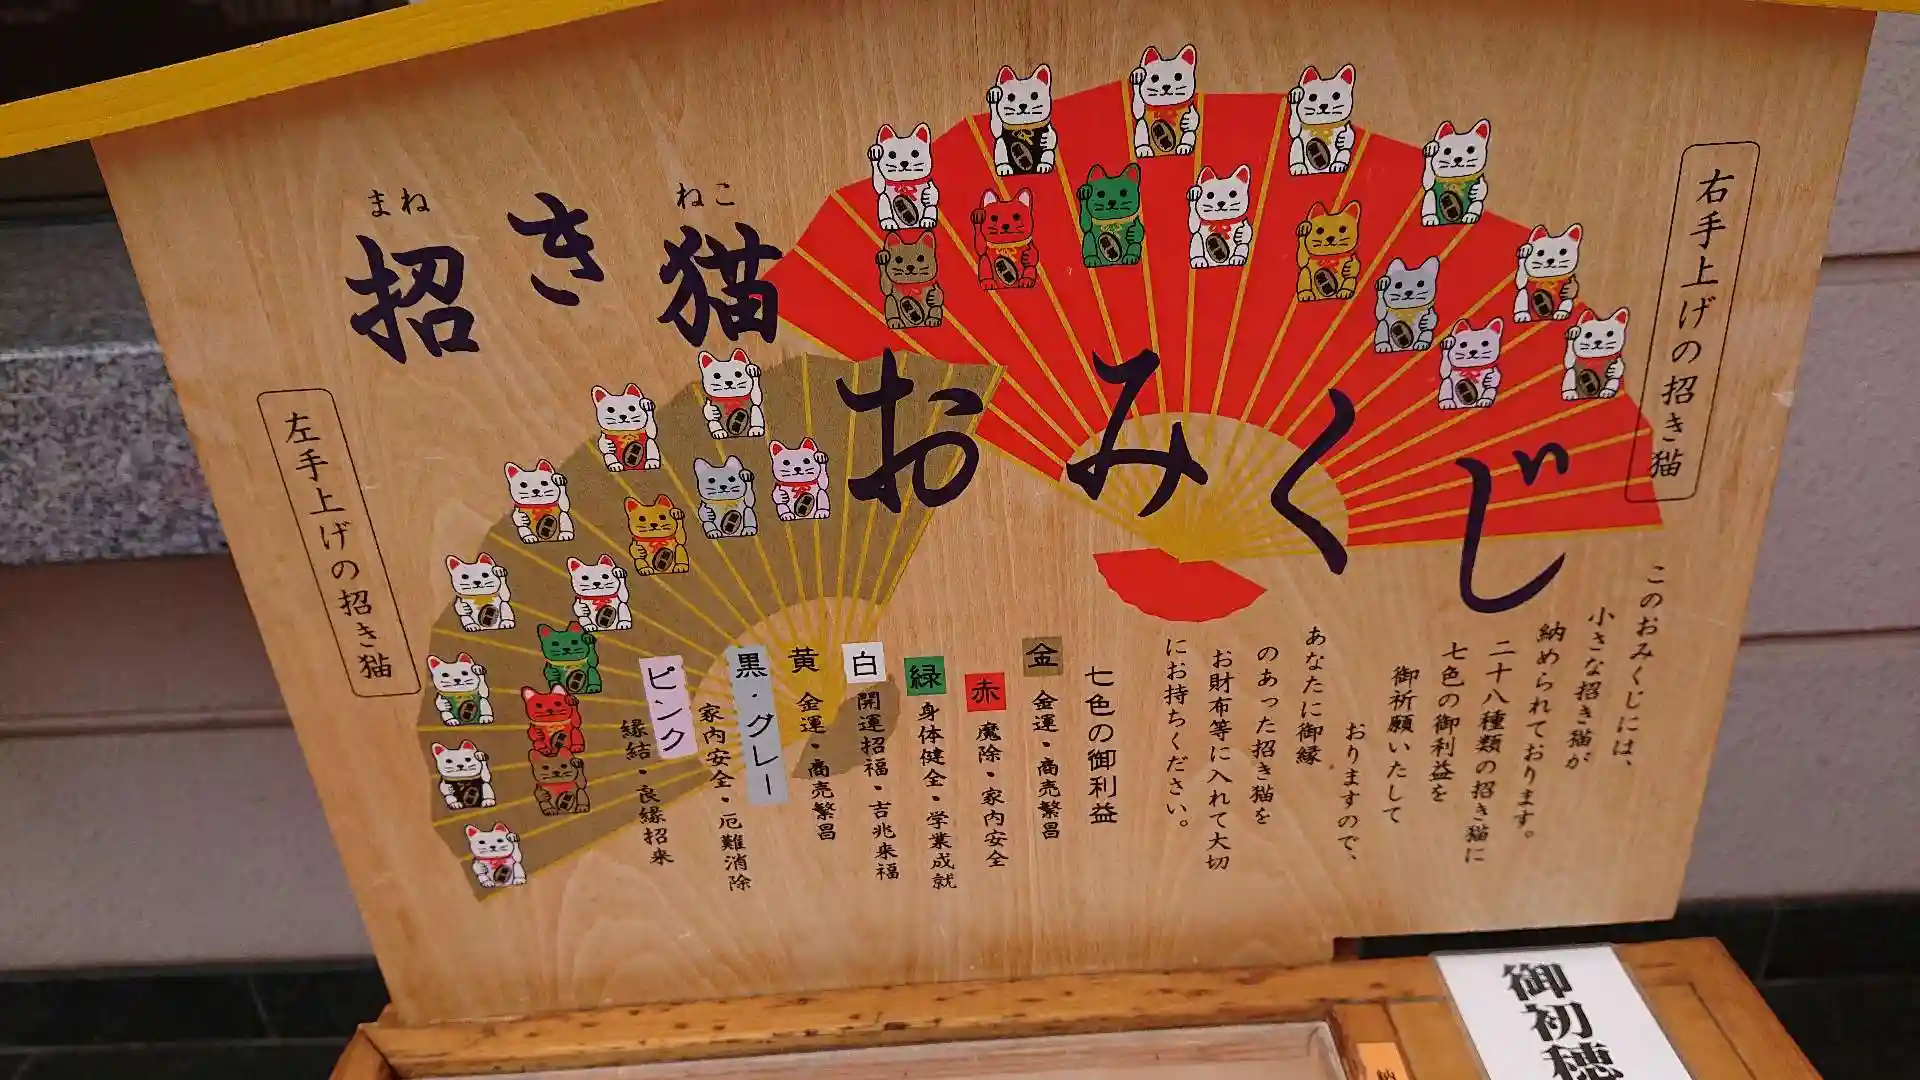 まね ねこ
招き猫
おみくじ
右手上げの招き猫
左手上げの招き猫
このおみくじには、
小さな招き猫が
納められております。
二十八種類の招き猫に
七色の御利益を
御祈願いたして
おりますので、
あなたに御縁
のあった招き猫を
お財布等に入れて大切
にお持ちください。
七色の御利益
金 金運・商売繁昌
赤 魔除・家内安全
緑 身体健全・学業成就
白 開運招福・吉兆来福
黄 金運・商売繁昌
黒・グレー 家内安全・厄難消除
ピンク 縁結・良縁招来
御初穂